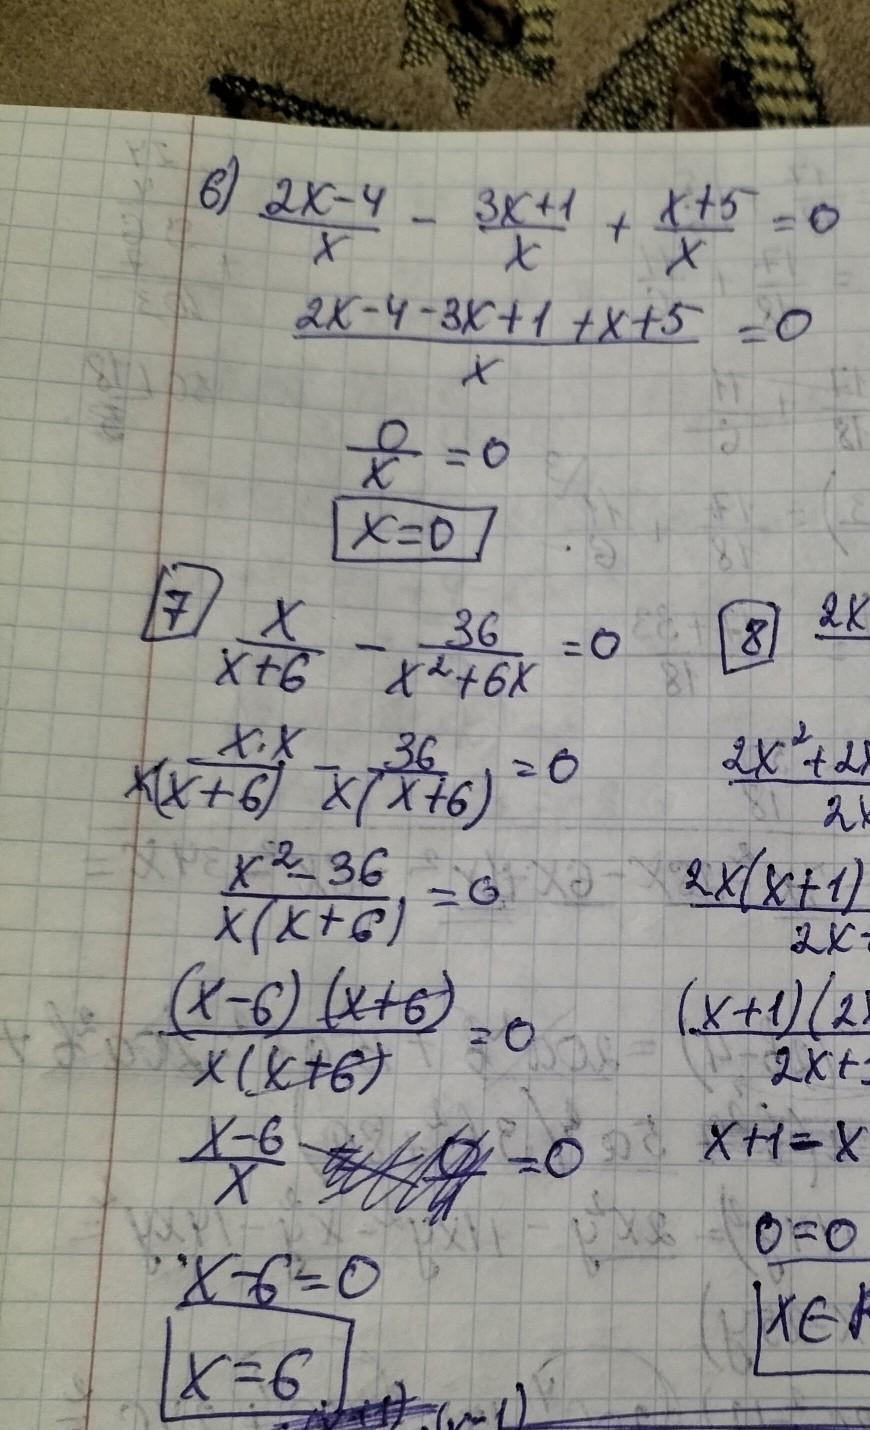 6) (2x-4)/x - (3x+1)/x + (x+5)/x = 0
(2x-4-3x+1+x+5)/x = 0
0/x = 0
x=0
7 x/(x+6) - 36/(x²+6x) = 0
(x·x)/(x(x+6)) - 36/(x(x+6)) = 0
(x²-36)/(x(x+6)) = 0
((x-6)(x+6))/(x(x+6)) = 0
(x-6)/x = 0
x-6=0
x=6
8 2x
2x²+2x
2x
2x(x+1)
2x
(x+1)(2x
2x+
x+1=x
0=0
x∈